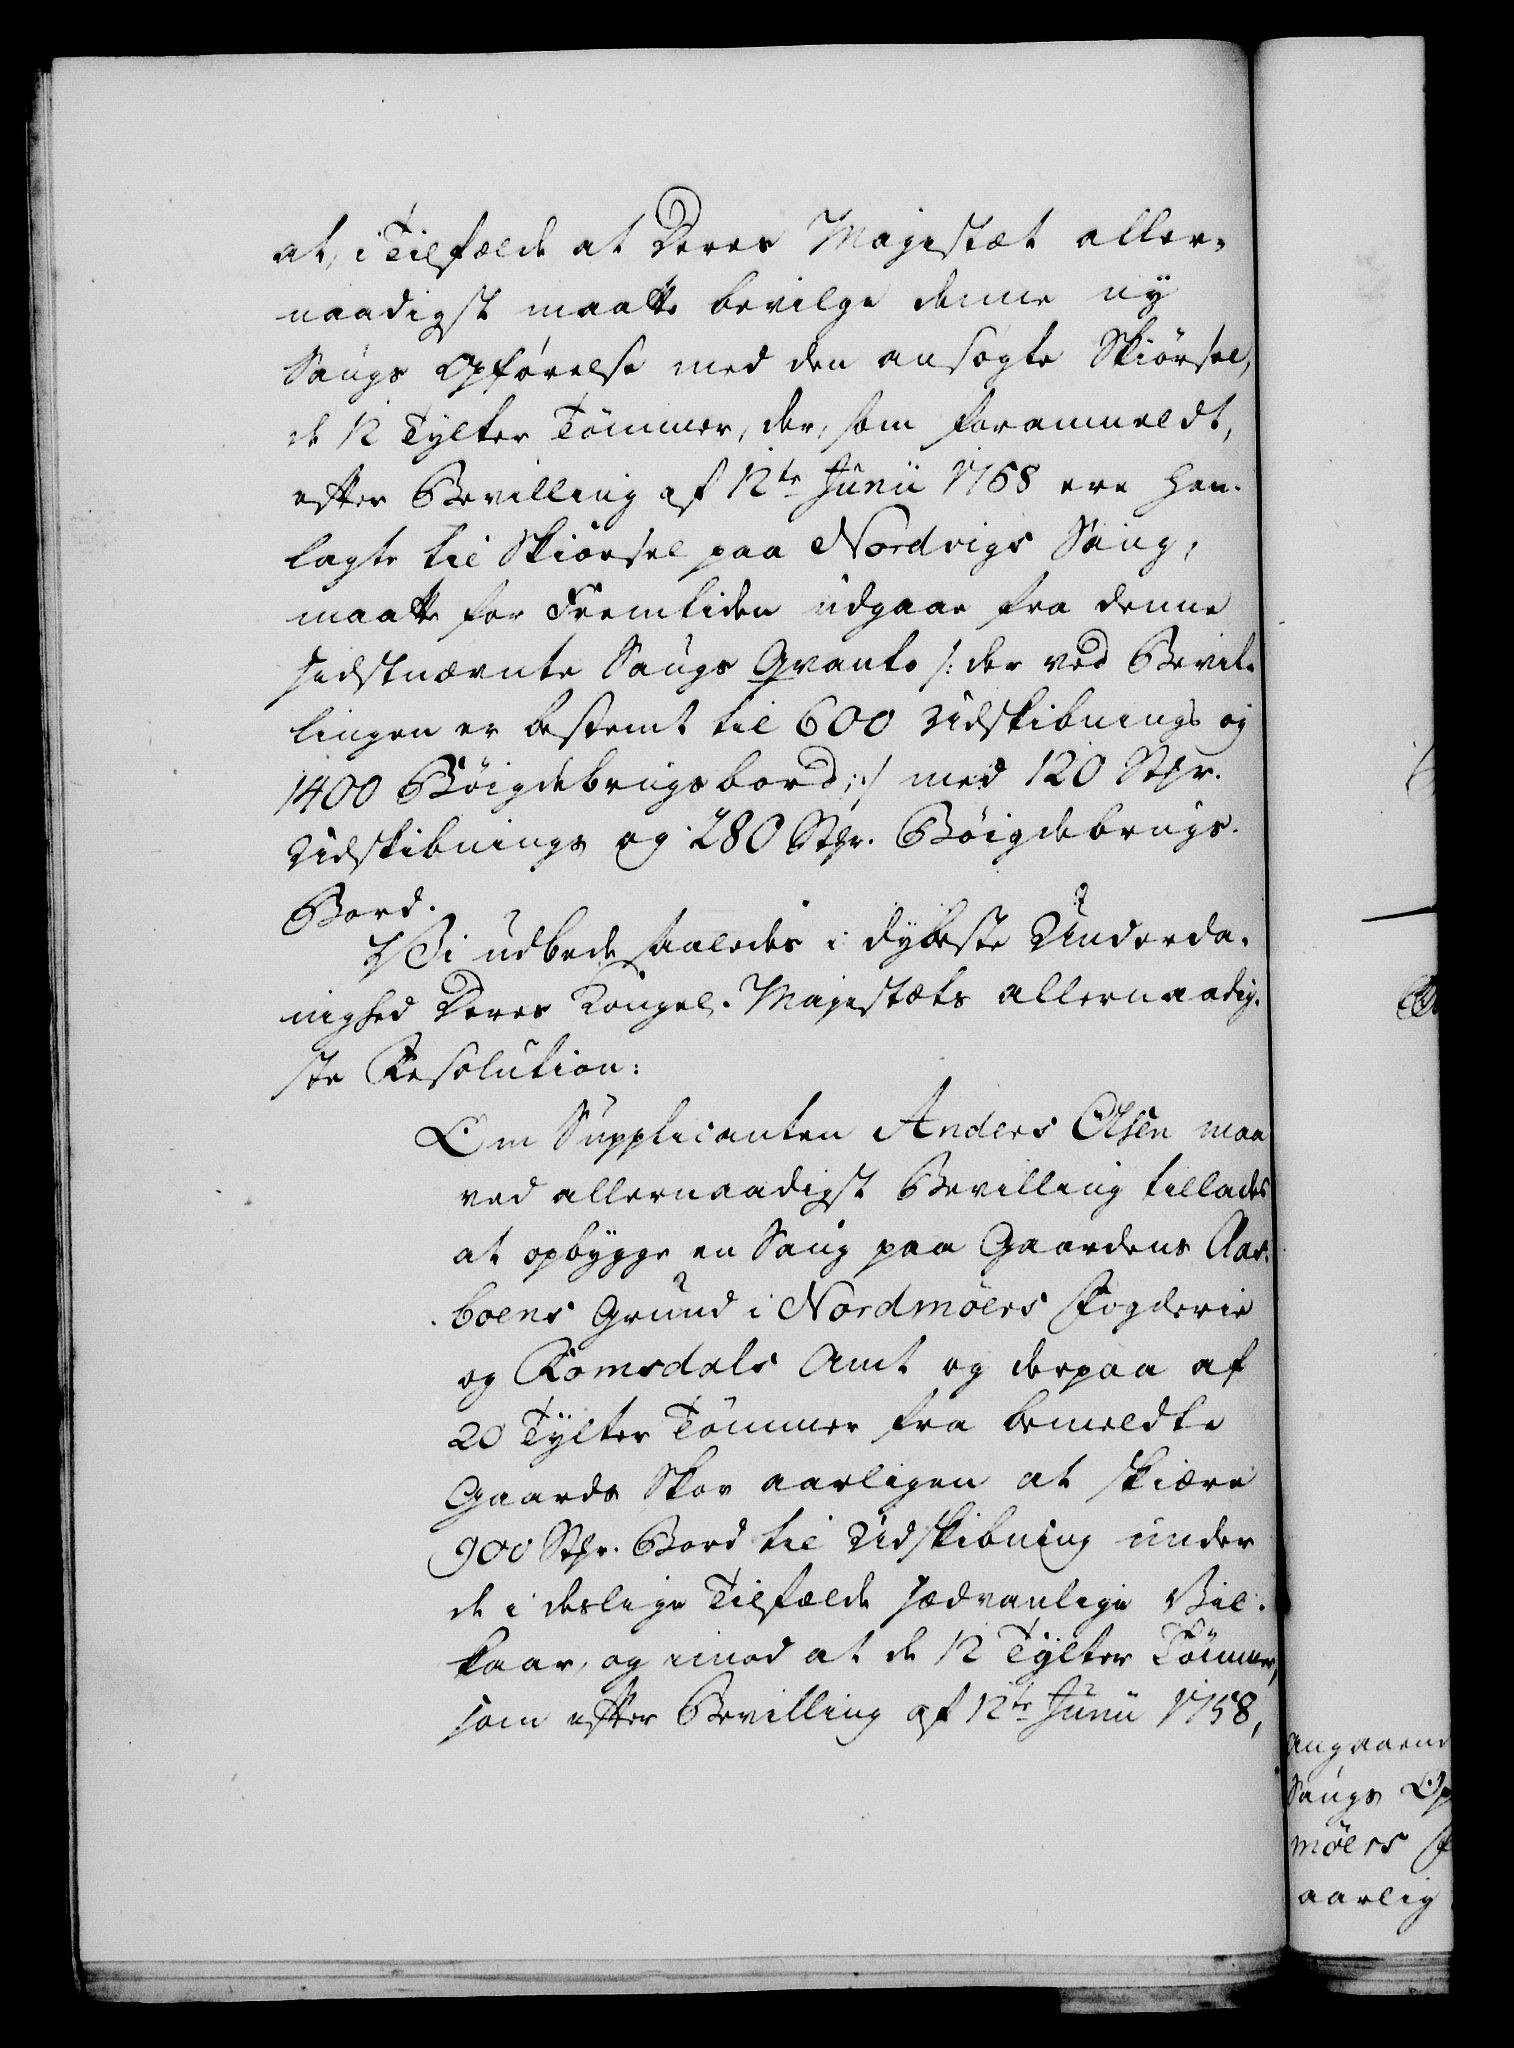 at, i Tilfælde at Deres Majestæt aller-
naadigst maatte bevilge denne ny
Saugs Opførelse med den ansøgte Skiørsel,
de 12 Tylter Tømmer, der, som foranmeldt,
efter Bevilling af 12te Junii 1768 ere hen-
lagte til Skiørsel paa Nordvigs Saug,
maatte for Fremtiden udgaae fra denne
sidstnævnte Saugs Qvanto /: der ved Bevil-
lingen er bestemt til 600 Udskibnings og
1400 Bøigdebrugsbord :/ med 120 Stkr.
Udskibnings og 280 Stkr. Bøigdebrugs-
Bord.
Vi udbede saaledes i dybeste Underda-
nighed Deres Kongel. Majestæts allernaadig-
ste Resolution:
Om Supplicanten Anders Olsen maa
ved allernaadigst Bevilling tillades
at opbygge en Saug paa Gaardens Aar-
boens Grund i Nordmøers Fogderie
og Romsdals Amt og derpaa af
20 Tylter Tømmer fra bemeldte
Gaards Skov aarligen at skiære
900 Stkr. Bord til Udskibning under
de i deslige Tilfælde sædvanlige Vil-
kaar, og imod at de 12 Tylter Tømmer,
som efter Bevilling af 12te Junii 1758,
angaaend
Saugs Op
møers F
aarlig